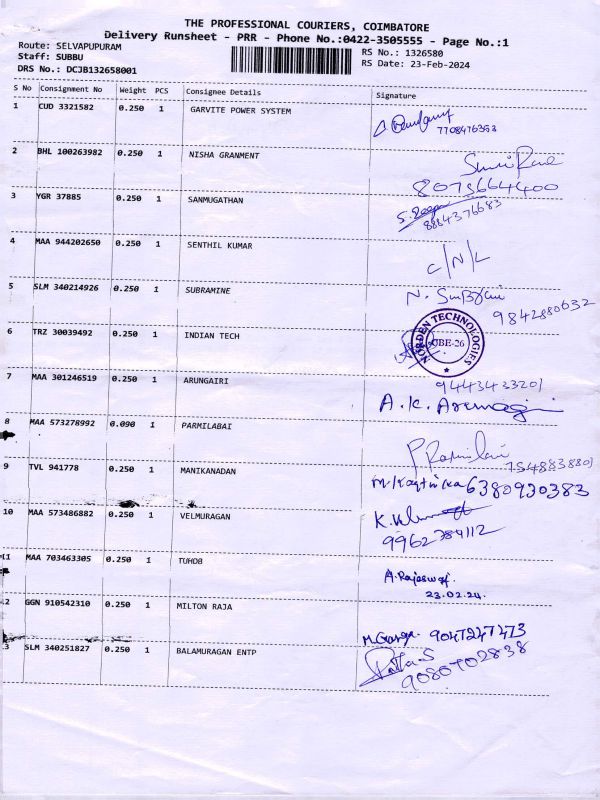 THE PROFESSIONAL COURIERS, COIMBATORE
Delivery Runsheet - PRR - Phone No.:0422-3505555 - Page No.:1
Route: SELVAPUPURAM
RS No.: 1326580
Staff: SUBBU
RS Date: 23-Feb-2024
DRS No.: DCJB132658001
S No Consignment No Weight PCS Consignee Details Signature
1 CUD 3321582 0.250 1 GARVITE POWER SYSTEM
2 BHL 100263982 0.250 1 NISHA GRANMENT
8073664400
3 YGR 37885 0.250 1 SANMUGATHAN
8884376683
4 MAA 944202650 0.250 1 SENTHIL KUMAR
C/N/L
5 SLM 340214926 0.250 1 SUBRAMINE
N.
9842880632
6 TRZ 30039492 0.250 1 INDIAN TECH
NORDEN TECHNOLOGIES
CBE-26
7 MAA 301246519 0.250 1 ARUNGAIRI
9443433201
A.K.
8 MAA 573278992 0.090 1 PARMILABAI
9 TVL 941778 0.250 1 MANIKANADAN
M. 6380930383
10 MAA 573486882 0.250 1 VELMURAGAN
11 MAA 703463305 0.250 1 TUHDB
A.Rajeswari
23.02.24.
2 GGN 910542310 0.250 1 MILTON RAJA
9047247473
3 SLM 340251827 0.250 1 BALAMURAGAN ENTP
9080702838